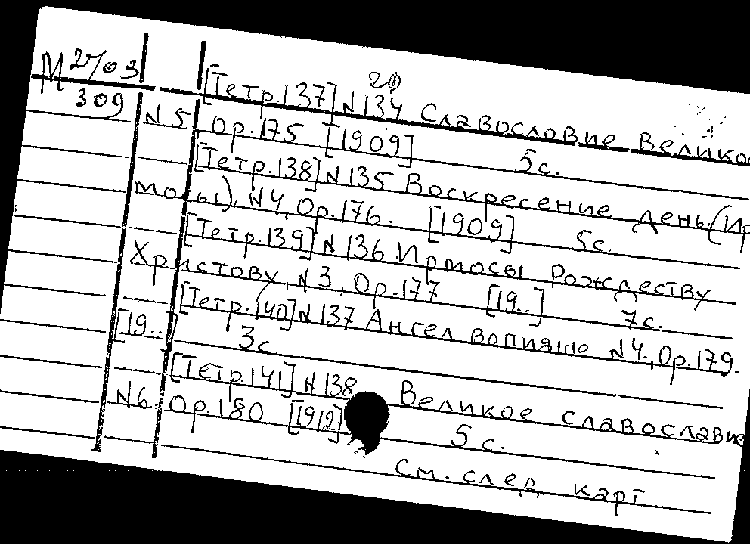 М 2703
309
20
[Тетр.137] N134 Славословие Велико
N5 Ор.175 [1909] 5с.
[Тетр.138] N135 Воскресение день (Ир
мосы), N4, Ор.176. [1909] 5с.
[Тетр.139] N136 Ирмосы Рождеству
Христову, N3, Ор.177 [19..] 7с.
[Тетр.140] N137 Ангел вопияше N4, Ор.179.
[19..] 3с
[Тетр.141] N138 Великое славославие
N6 Ор.180 [1912] 5с.
См. след. карт